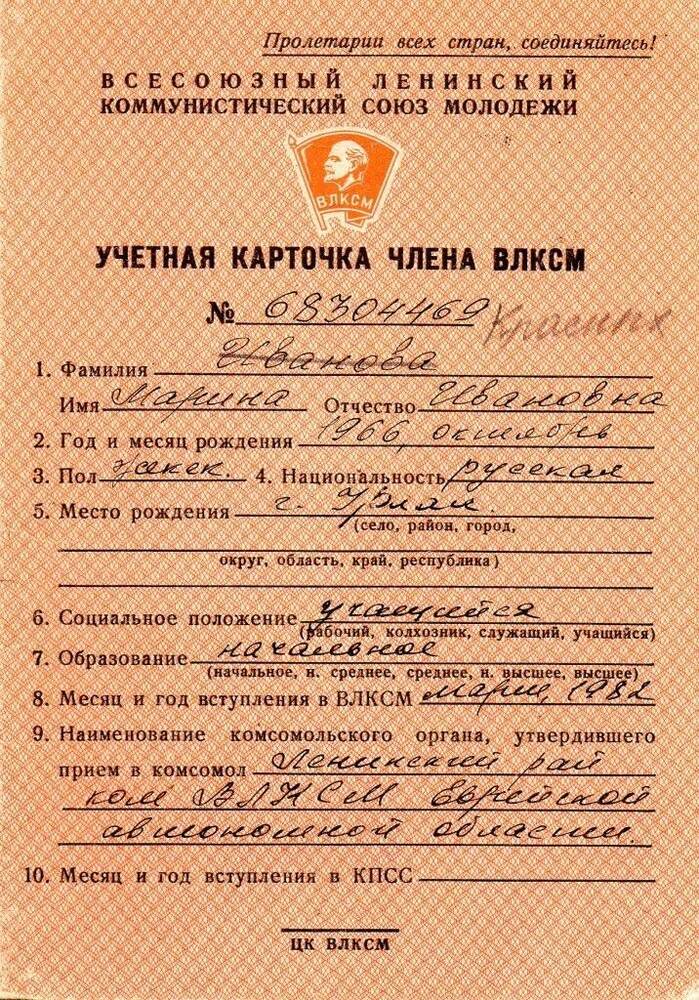 Пролетарии всех стран, соединяйтесь!
ВСЕСОЮЗНЫЙ ЛЕНИНСКИЙ
КОММУНИСТИЧЕСКИЙ СОЮЗ МОЛОДЕЖИ
ВЛКСМ
УЧЕТНАЯ КАРТОЧКА ЧЛЕНА ВЛКСМ
№ 68304469
1. Фамилия Иванова
Имя Марина Отчество Ивановна
2. Год и месяц рождения 1966, октябрь
3. Пол женск. 4. Национальность русская
5. Место рождения г.
(село, район, город,
округ, область, край, республика)
6. Социальное положение учащийся
(рабочий, колхозник, служащий, учащийся)
7. Образование начальное
(начальное, н. среднее, среднее, н. высшее, высшее)
8. Месяц и год вступления в ВЛКСМ март, 1982
9. Наименование комсомольского органа, утвердившего
прием в комсомол Ленинский рай
ком ВЛКСМ Еврейской
автономной области.
10. Месяц и год вступления в КПСС
ЦК ВЛКСМ